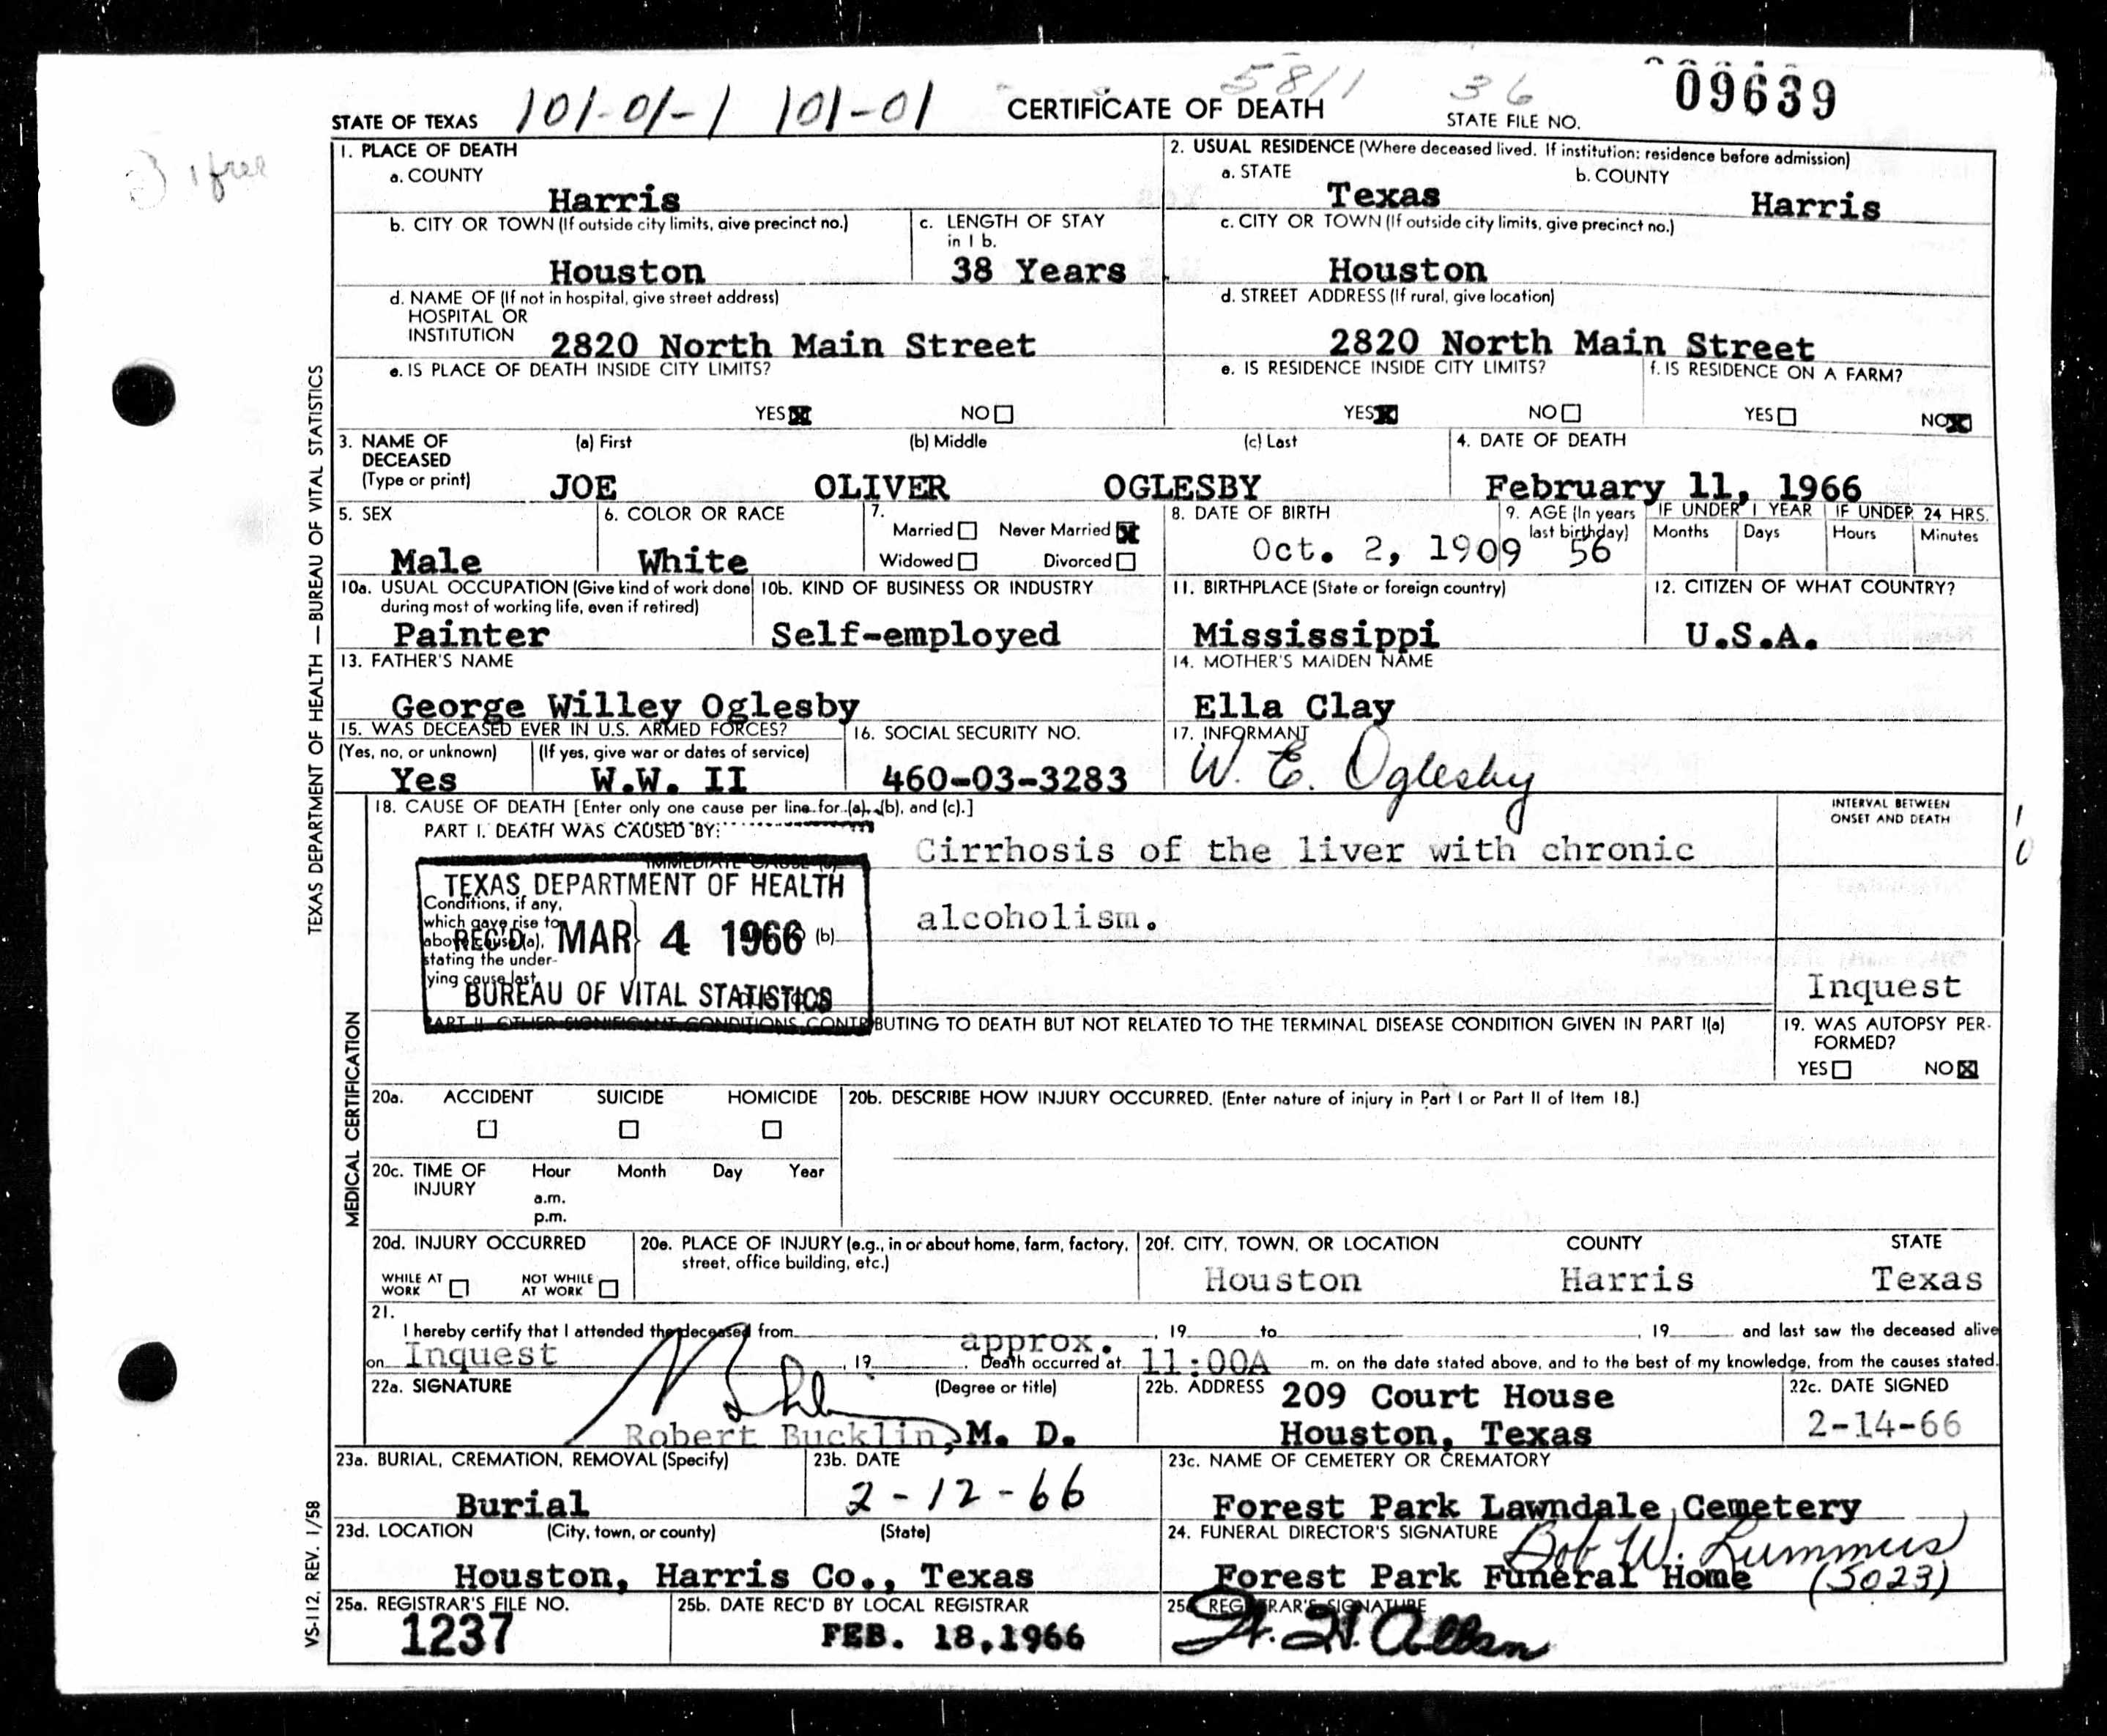 09639
5811 36
STATE OF TEXAS 101-01-1 101-01 CERTIFICATE OF DEATH STATE FILE NO.
1 free
1. PLACE OF DEATH
a. COUNTY
Harris
2. USUAL RESIDENCE (Where deceased lived. If institution: residence before admission)
a. STATE b. COUNTY
Texas Harris
b. CITY OR TOWN (If outside city limits, give precinct no.)
Houston
c. LENGTH OF STAY
in 1 b.
38 Years
c. CITY OR TOWN (If outside city limits, give precinct no.)
Houston
d. NAME OF (If not in hospital, give street address)
HOSPITAL OR
INSTITUTION 2820 North Main Street
d. STREET ADDRESS (If rural, give location)
2820 North Main Street
e. IS PLACE OF DEATH INSIDE CITY LIMITS?
YES NO
e. IS RESIDENCE INSIDE CITY LIMITS?
YES NO
f. IS RESIDENCE ON A FARM?
YES NO
3. NAME OF
DECEASED
(Type or print)
(a) First (b) Middle (c) Last
JOE OLIVER OGLESBY
4. DATE OF DEATH
February 11, 1966
5. SEX
Male
6. COLOR OR RACE
White
7.
Married Never Married
Widowed Divorced
8. DATE OF BIRTH
Oct. 2, 1909
9. AGE (In years
last birthday)
56
IF UNDER 1 YEAR IF UNDER 24 HRS.
Months Days Hours Minutes
10a. USUAL OCCUPATION (Give kind of work done
during most of working life, even if retired)
Painter
10b. KIND OF BUSINESS OR INDUSTRY
Self-employed
11. BIRTHPLACE (State or foreign country)
Mississippi
12. CITIZEN OF WHAT COUNTRY?
U.S.A.
13. FATHER'S NAME
George Willey Oglesby
14. MOTHER'S MAIDEN NAME
Ella Clay
15. WAS DECEASED EVER IN U.S. ARMED FORCES?
(Yes, no, or unknown) (If yes, give war or dates of service)
Yes W.W. II
16. SOCIAL SECURITY NO.
460-03-3283
17. INFORMANT
W. E. Oglesby
18. CAUSE OF DEATH [Enter only one cause per line for (a), (b), and (c).]
PART I. DEATH WAS CAUSED BY:
IMMEDIATE CAUSE (a)
Cirrhosis of the liver with chronic
alcoholism.
INTERVAL BETWEEN
ONSET AND DEATH
Inquest
TEXAS DEPARTMENT OF HEALTH
REC'D MAR 4 1966
BUREAU OF VITAL STATISTICS
Conditions, if any,
which gave rise to
above cause (a),
stating the under-
ying cause last.
(b)
PART II. OTHER SIGNIFICANT CONDITIONS CONTRIBUTING TO DEATH BUT NOT RELATED TO THE TERMINAL DISEASE CONDITION GIVEN IN PART I(a)
19. WAS AUTOPSY PER-
FORMED?
YES NO
20a. ACCIDENT SUICIDE HOMICIDE
20b. DESCRIBE HOW INJURY OCCURRED. (Enter nature of injury in Part I or Part II of Item 18.)
20c. TIME OF
INJURY
Hour Month Day Year
a.m.
p.m.
20d. INJURY OCCURRED
WHILE AT
WORK
NOT WHILE
AT WORK
20e. PLACE OF INJURY (e.g., in or about home, farm, factory,
street, office building, etc.)
20f. CITY, TOWN, OR LOCATION COUNTY STATE
Houston Harris Texas
21.
I hereby certify that I attended the deceased from , 19 to , 19 and last saw the deceased alive
approx.
on Inquest , 19 . Death occurred at 11:00A m. on the date stated above, and to the best of my knowledge, from the causes stated.
22a. SIGNATURE (Degree or title)
Robert Bucklin, M. D.
22b. ADDRESS 209 Court House
Houston, Texas
22c. DATE SIGNED
2-14-66
23a. BURIAL, CREMATION, REMOVAL (Specify)
Burial
23b. DATE
2-12-66
23c. NAME OF CEMETERY OR CREMATORY
Forest Park Lawndale Cemetery
23d. LOCATION (City, town, or county) (State)
Houston, Harris Co., Texas
24. FUNERAL DIRECTOR'S SIGNATURE Bob W. Lummus
Forest Park Funeral Home (5023)
25a. REGISTRAR'S FILE NO.
1237
25b. DATE REC'D BY LOCAL REGISTRAR
FEB. 18, 1966
REGISTRAR'S SIGNATURE
TEXAS DEPARTMENT OF HEALTH — BUREAU OF VITAL STATISTICS
MEDICAL CERTIFICATION
VS-112, REV. 1/58